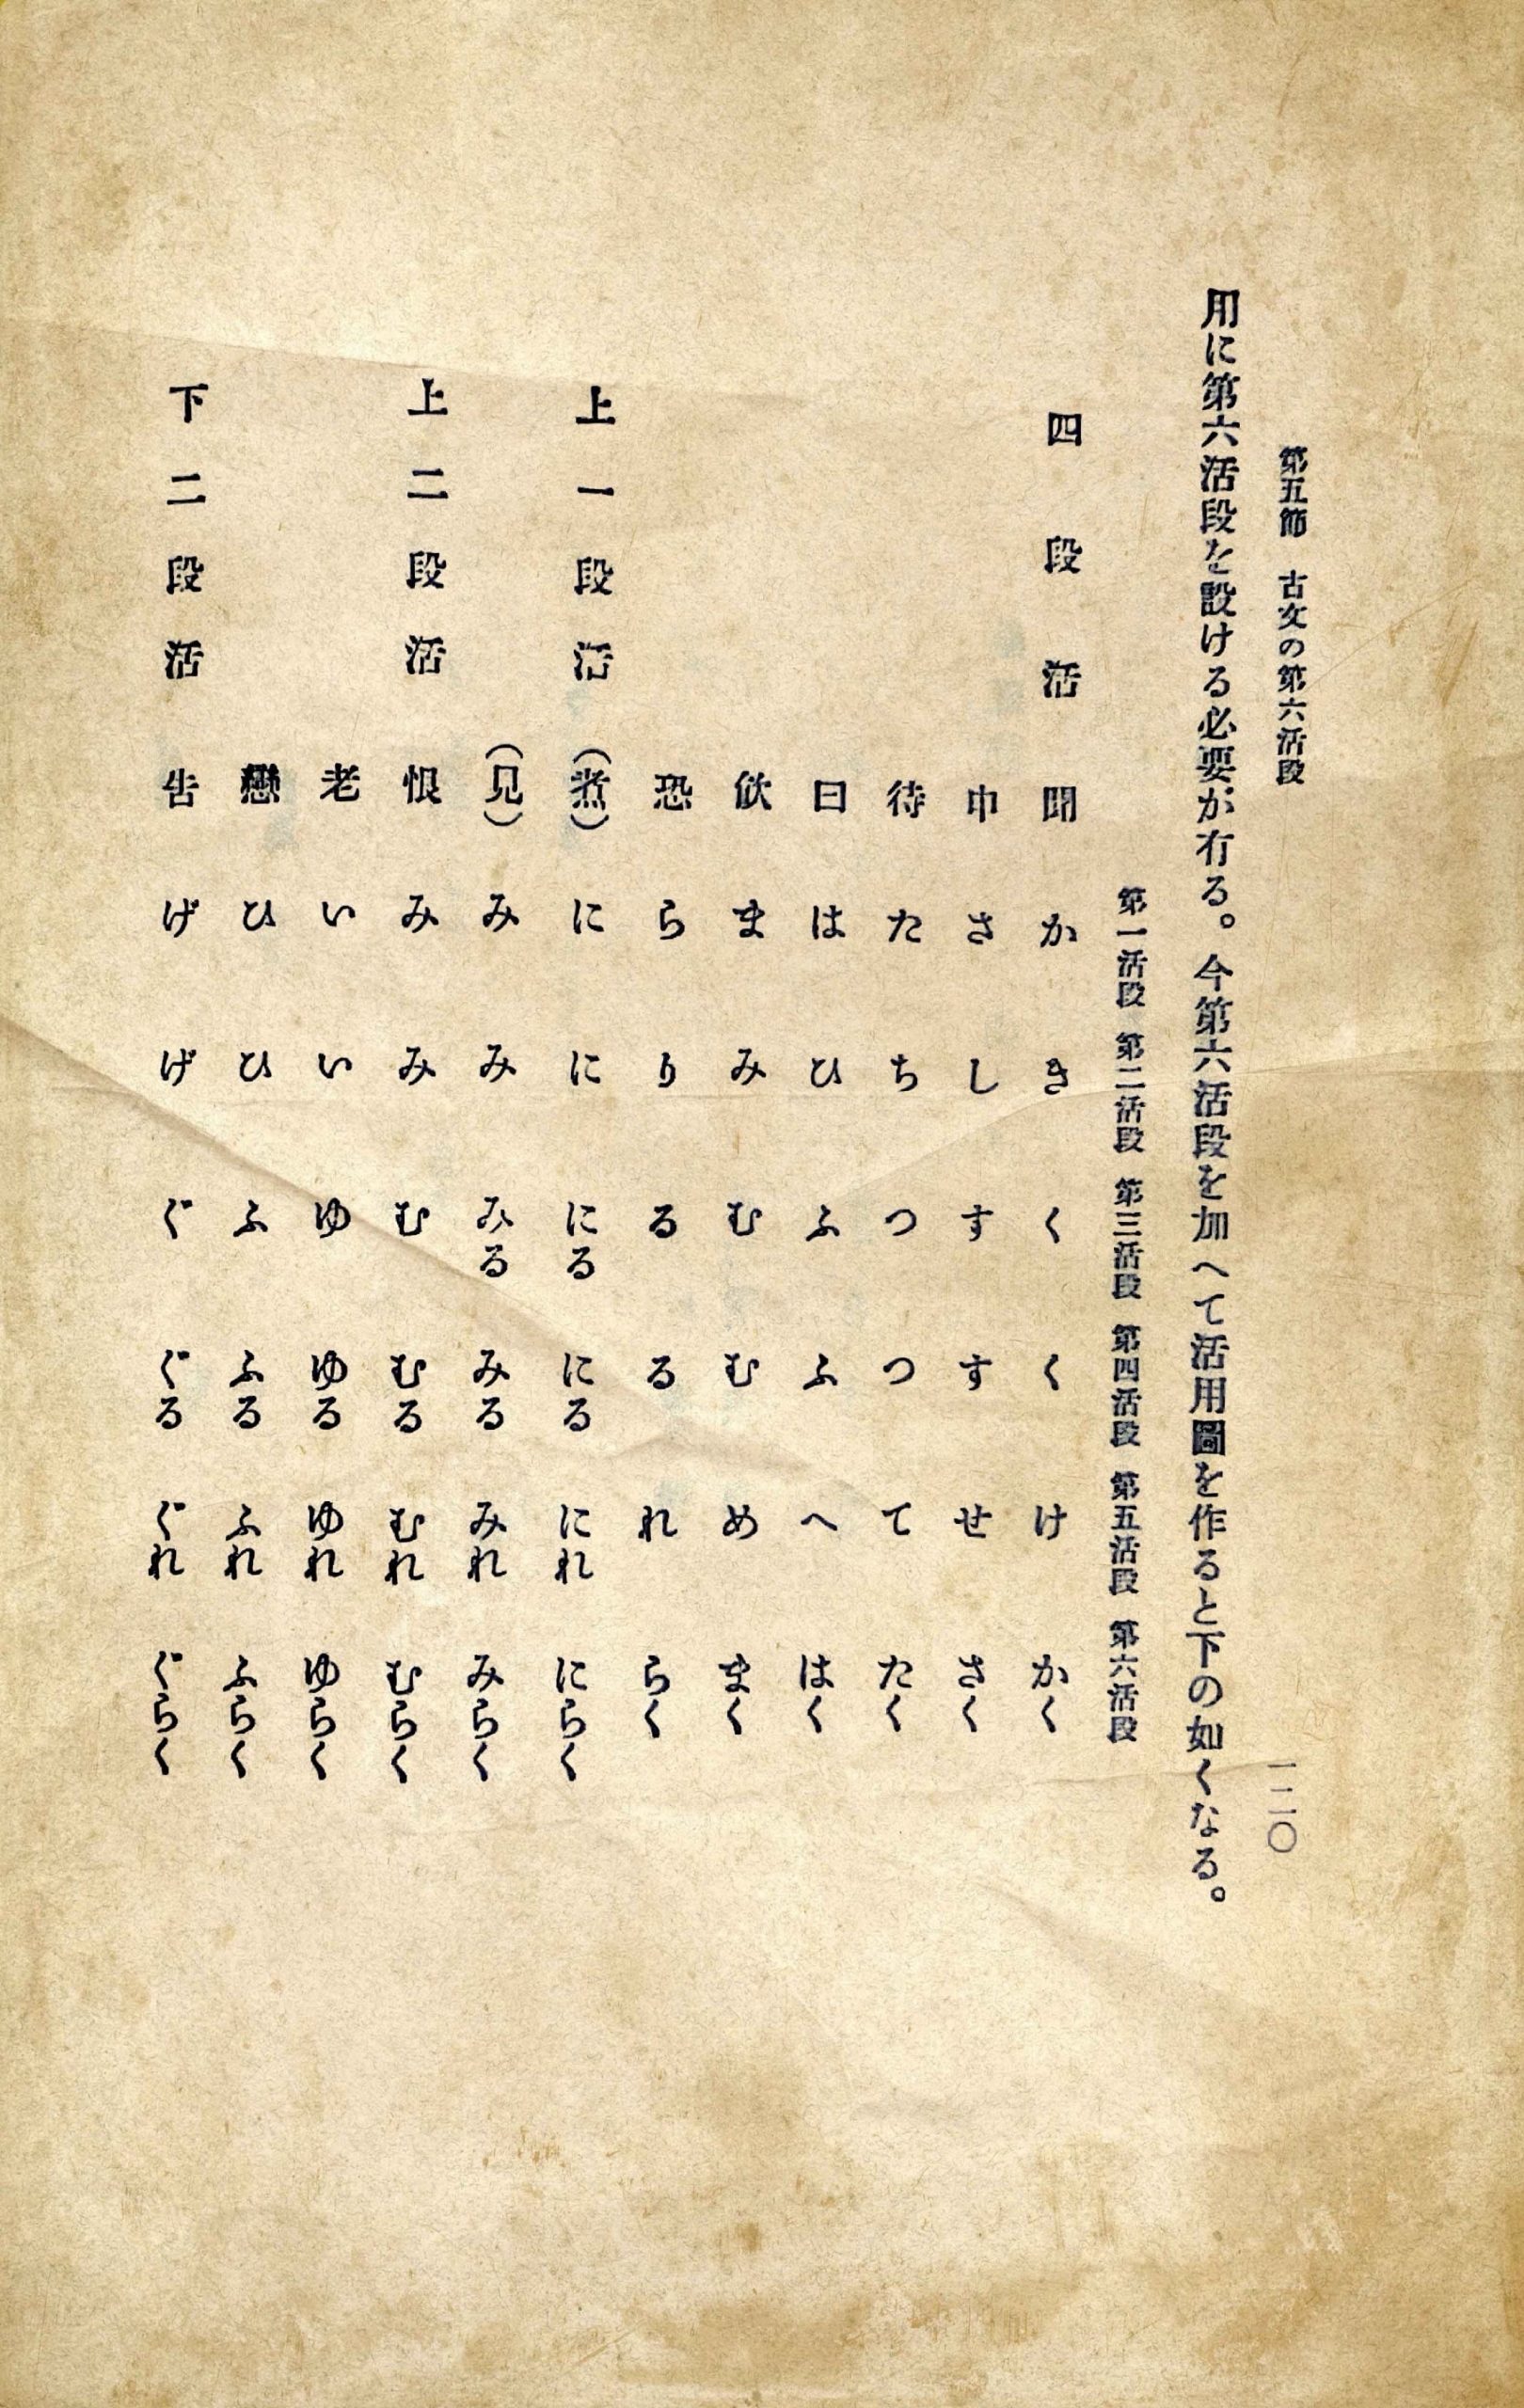 第五節 古文の第六活段
一二〇
用に第六活段を設ける必要が有る。今第六活段を加へて活用圖を作ると下の如くなる。
第一活段 第二活段 第三活段 第四活段 第五活段 第六活段
四段活 聞 か き く く け かく
申 さ し す す せ さく
待 た ち つ つ て たく
曰 は ひ ふ ふ へ はく
飮 ま み む む め まく
恐 ら り る る れ らく
上一段活 (煮) に に にる にる にれ にらく
(見) み み みる みる みれ みらく
上二段活 恨 み み む むる むれ むらく
老 い い ゆ ゆる ゆれ ゆらく
戀 ひ ひ ふ ふる ふれ ふらく
下二段活 告 げ げ ぐ ぐる ぐれ ぐらく